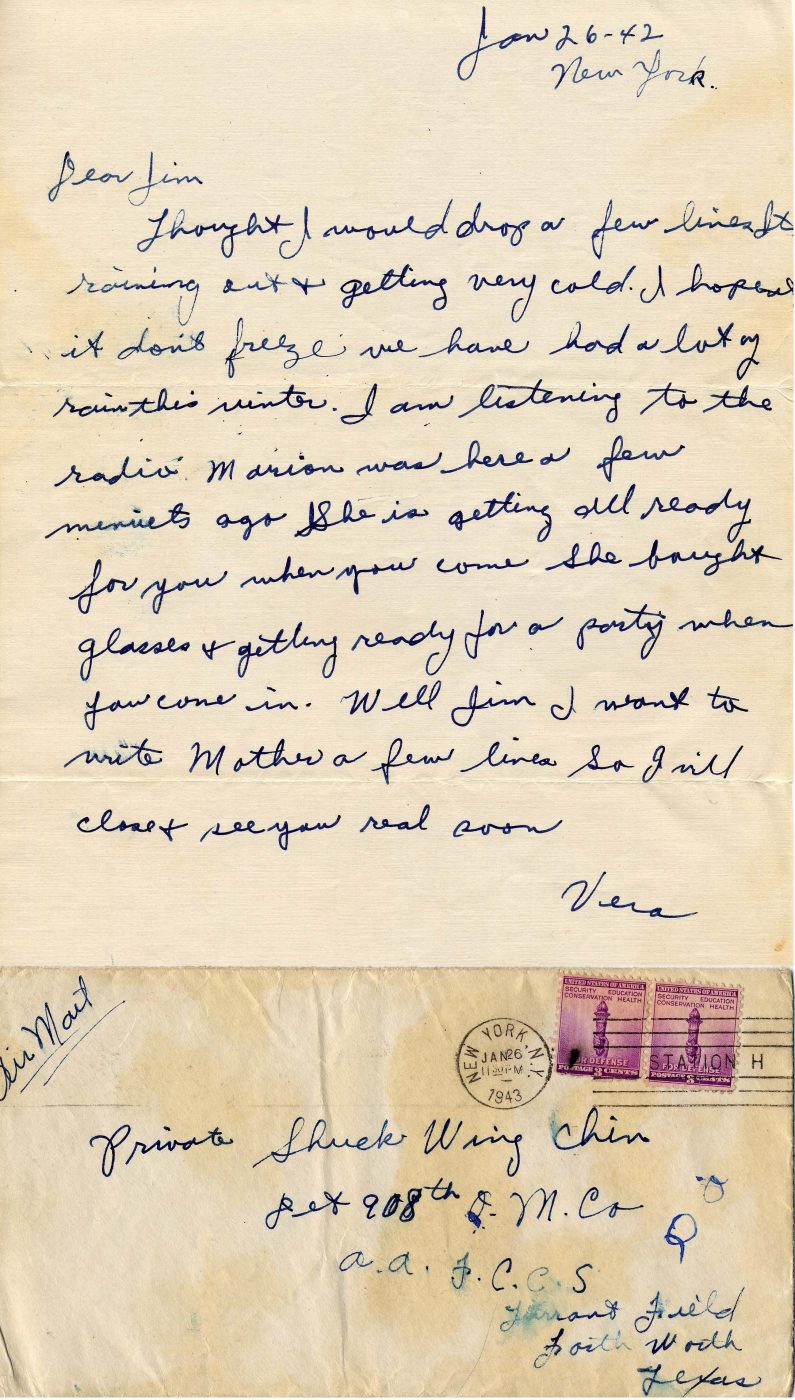 Jan 26-42
New York.
Dear Jim
Thought I would drop a few lines It
raining out & getting very cold. I hope
it don't freeze we have had a lot of
rain this winter. I am listening to the
radio. Marion was here a few
menuets ago She is getting all ready
for you when you come She bought
glasses & getting ready for a party when
you come in. Well Jim I want to
write Mother a few lines So I will
close & see you real soon
Vera
Air Mail
NEW YORK, N.Y.
JAN 26
11 PM
1943
STATION H
UNITED STATES OF AMERICA UNITED STATES OF AMERICA
SECURITY EDUCATION SECURITY EDUCATION
CONSERVATION HEALTH CONSERVATION HEALTH
FOR DEFENSE FOR DEFENSE
POSTAGE 3 CENTS POSTAGE 3 CENTS
Private Shuck Wing Chin
Det 908th Q. M. Co
a.a. F.C.C.S
Tarrant Field
Forth Worth
Texas